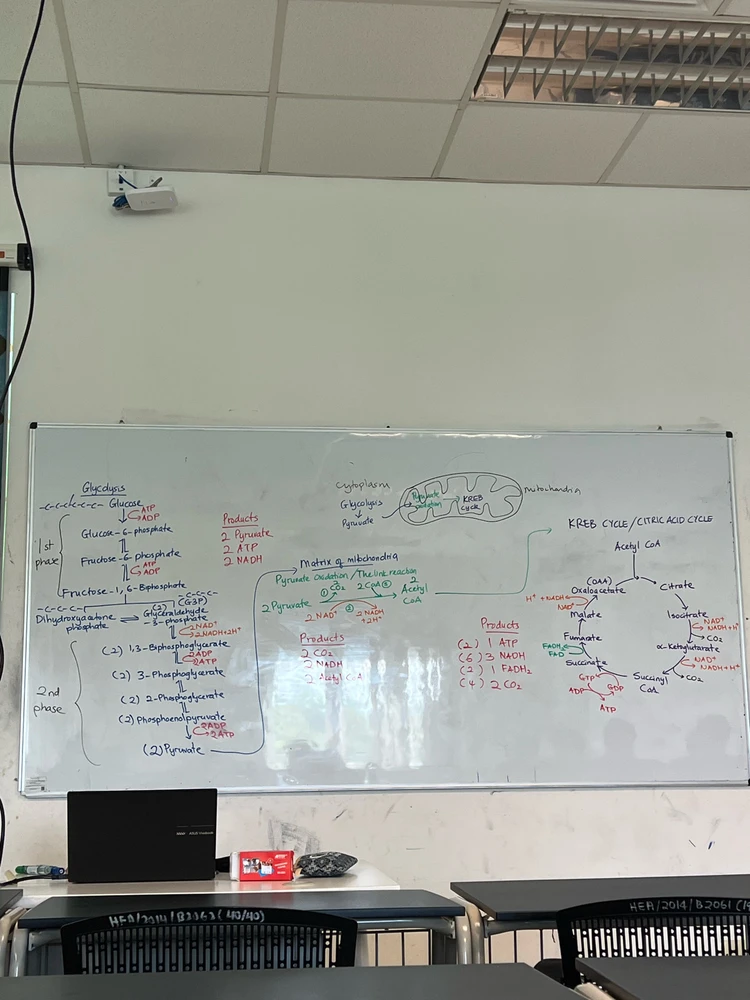 Glycolysis
-c-c-c-c-c-c- Glucose
ATP
ADP
Glucose-6-phosphate
1st phase
Fructose-6-phosphate
ATP
ADP
Fructose-1,6-Biphosphate
-c-c-c-
-c-c-c-
(2)
(G3P)
Dihydroxyacetone phosphate
Glyceraldehyde -3-phosphate
2NAD+
2NADH+2H+
(2) 1,3-Biphosphoglycerate
2ADP
2ATP
2nd phase
(2) 3-Phosphoglycerate
(2) 2-Phosphoglycerate
(2) Phosphoenolpyruvate
2ADP
2ATP
(2) Pyruvate
Products
2 Pyruvate
2 ATP
2 NADH
Cytoplasm
Glycolysis
Pyruvate
Pyruvate oxidation
KREB CYCLE
mitochondria
Matrix of mitochondria
Pyruvate Oxidation / The link reaction
① CO2
2 Pyruvate
2 NAD+
②
2 NADH +2H+
2 Acetyl CoA
Products
2 CO2
2 NADH
2 Acetyl CoA
KREB CYCLE/CITRIC ACID CYCLE
Acetyl CoA
(OAA)
Oxaloacetate
Citrate
H+ + NADH
NAD+
Malate
Isocitrate
NAD+
NADH+H+
CO2
Fumarate
α-Ketoglutarate
FADH2
FAD
NAD+
NADH+H+
Succinate
Succinyl CoA
CO2
GTP
GDP
ADP
ATP
Products
(2) 1 ATP
(6) 3 NADH
(2) 1 FADH2
(4) 2 CO2
HEA/2014/B2062(40/40)
HEA/2014/B2061